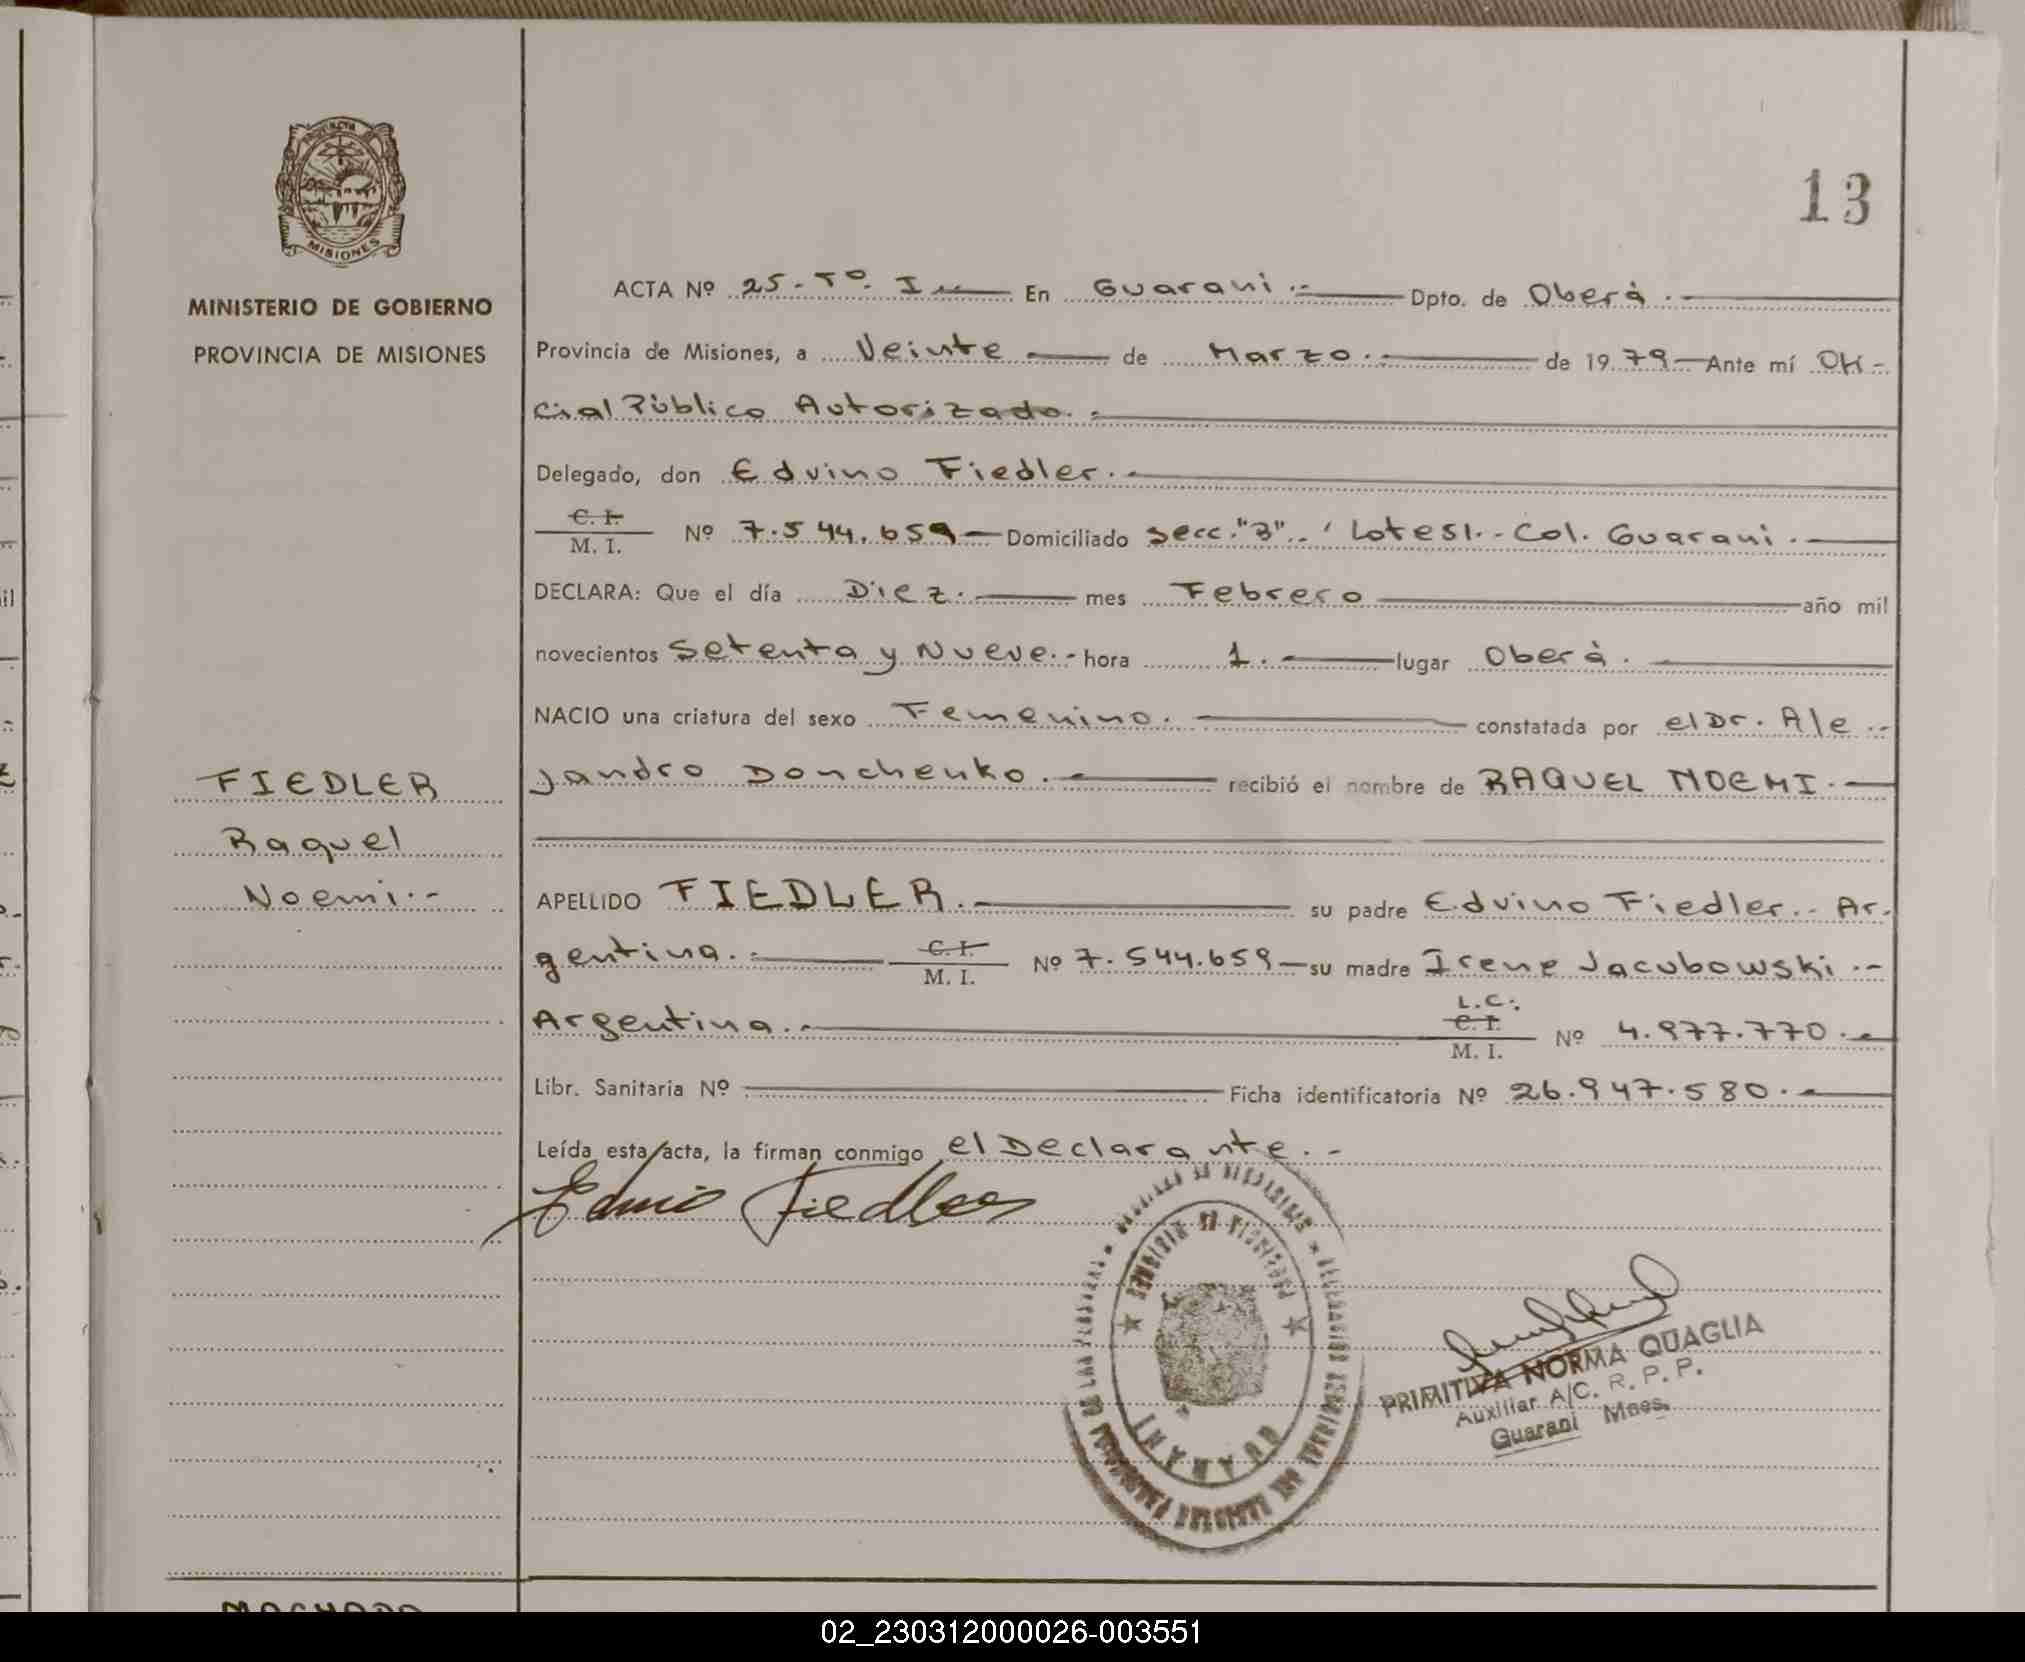 13
PROVINCIA
MISIONES
MINISTERIO DE GOBIERNO
PROVINCIA DE MISIONES
FIEDLER
Raquel
Noemi.-
ACTA Nº 25.- Tº. I En Guarani.- Dpto. de Oberá.
Provincia de Misiones, a Veinte de Marzo. de 1979 Ante mí Ofi-
cial Público Autorizado.-
Delegado, don Edvino Fiedler.-
C. I.
M. I. Nº 7.544.659 Domiciliado Secc. "B".. Lote 51.- Col. Guarani.
DECLARA: Que el día Diez. mes Febrero año mil
novecientos Setenta y Nueve.- hora 1. lugar Oberá.
NACIO una criatura del sexo Femenino. constatada por el Dr. Ale-
jandro Donchenko. recibió el nombre de RAQUEL NOEMI.
APELLIDO FIEDLER. su padre Edvino Fiedler.- Ar-
gentina. C. I. M. I. Nº 7.544.659 su madre Irene Jacubowski.-
Argentina.- L.C. C. I. M. I. Nº 4.977.770.
Libr. Sanitaria Nº Ficha identificatoria Nº 26.947.580.
Leída esta acta, la firman conmigo el Declarante.-
Edvino Fiedler
GUARANI
PRIMITIVA NORMA QUAGLIA
Auxiliar A/C. R. P. P.
Guarani Mnes.
02_230312000026-003551